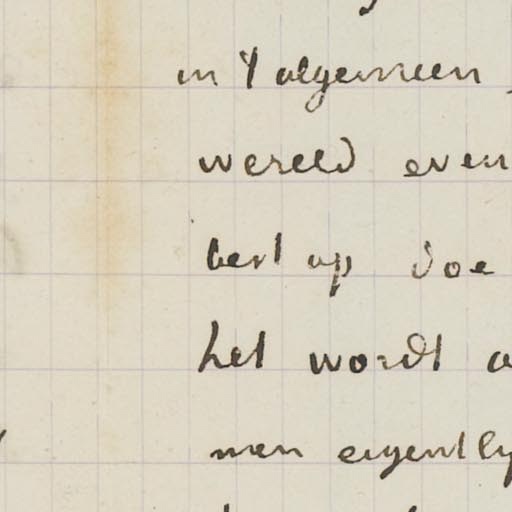 in 't algemeen
wereld even
best op doe
het wordt
men eigently